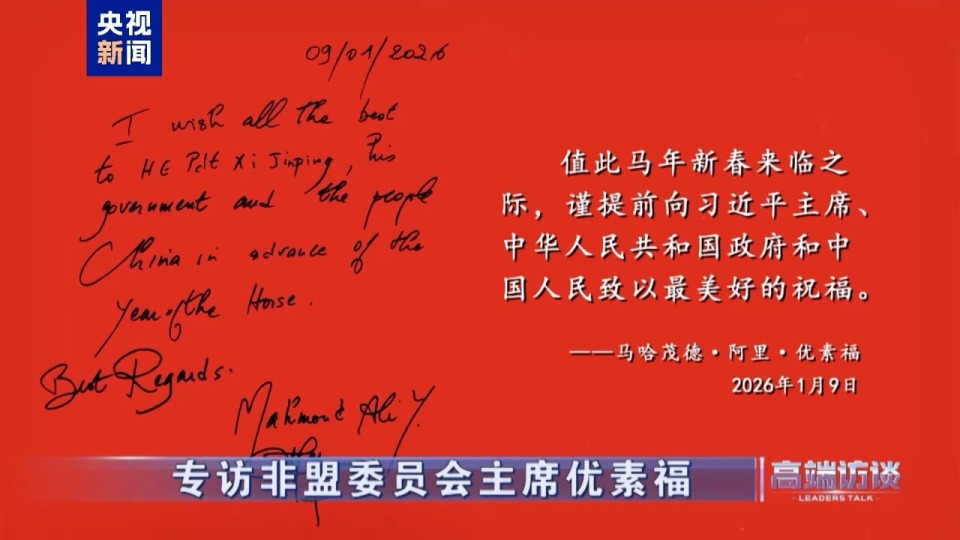 央视
新闻
09/01/2026
I wish all the best
to HE Pdt Xi Jinping, his
government and the people
China in advance of the
Year of the Horse.
Best Regards.
Mahmoud Ali Y.
值此马年新春来临之
际，谨提前向习近平主席、
中华人民共和国政府和中
国人民致以最美好的祝福。
——马哈茂德·阿里·优素福
2026年1月9日
专访非盟委员会主席优素福
高端访谈
LEADERS TALK